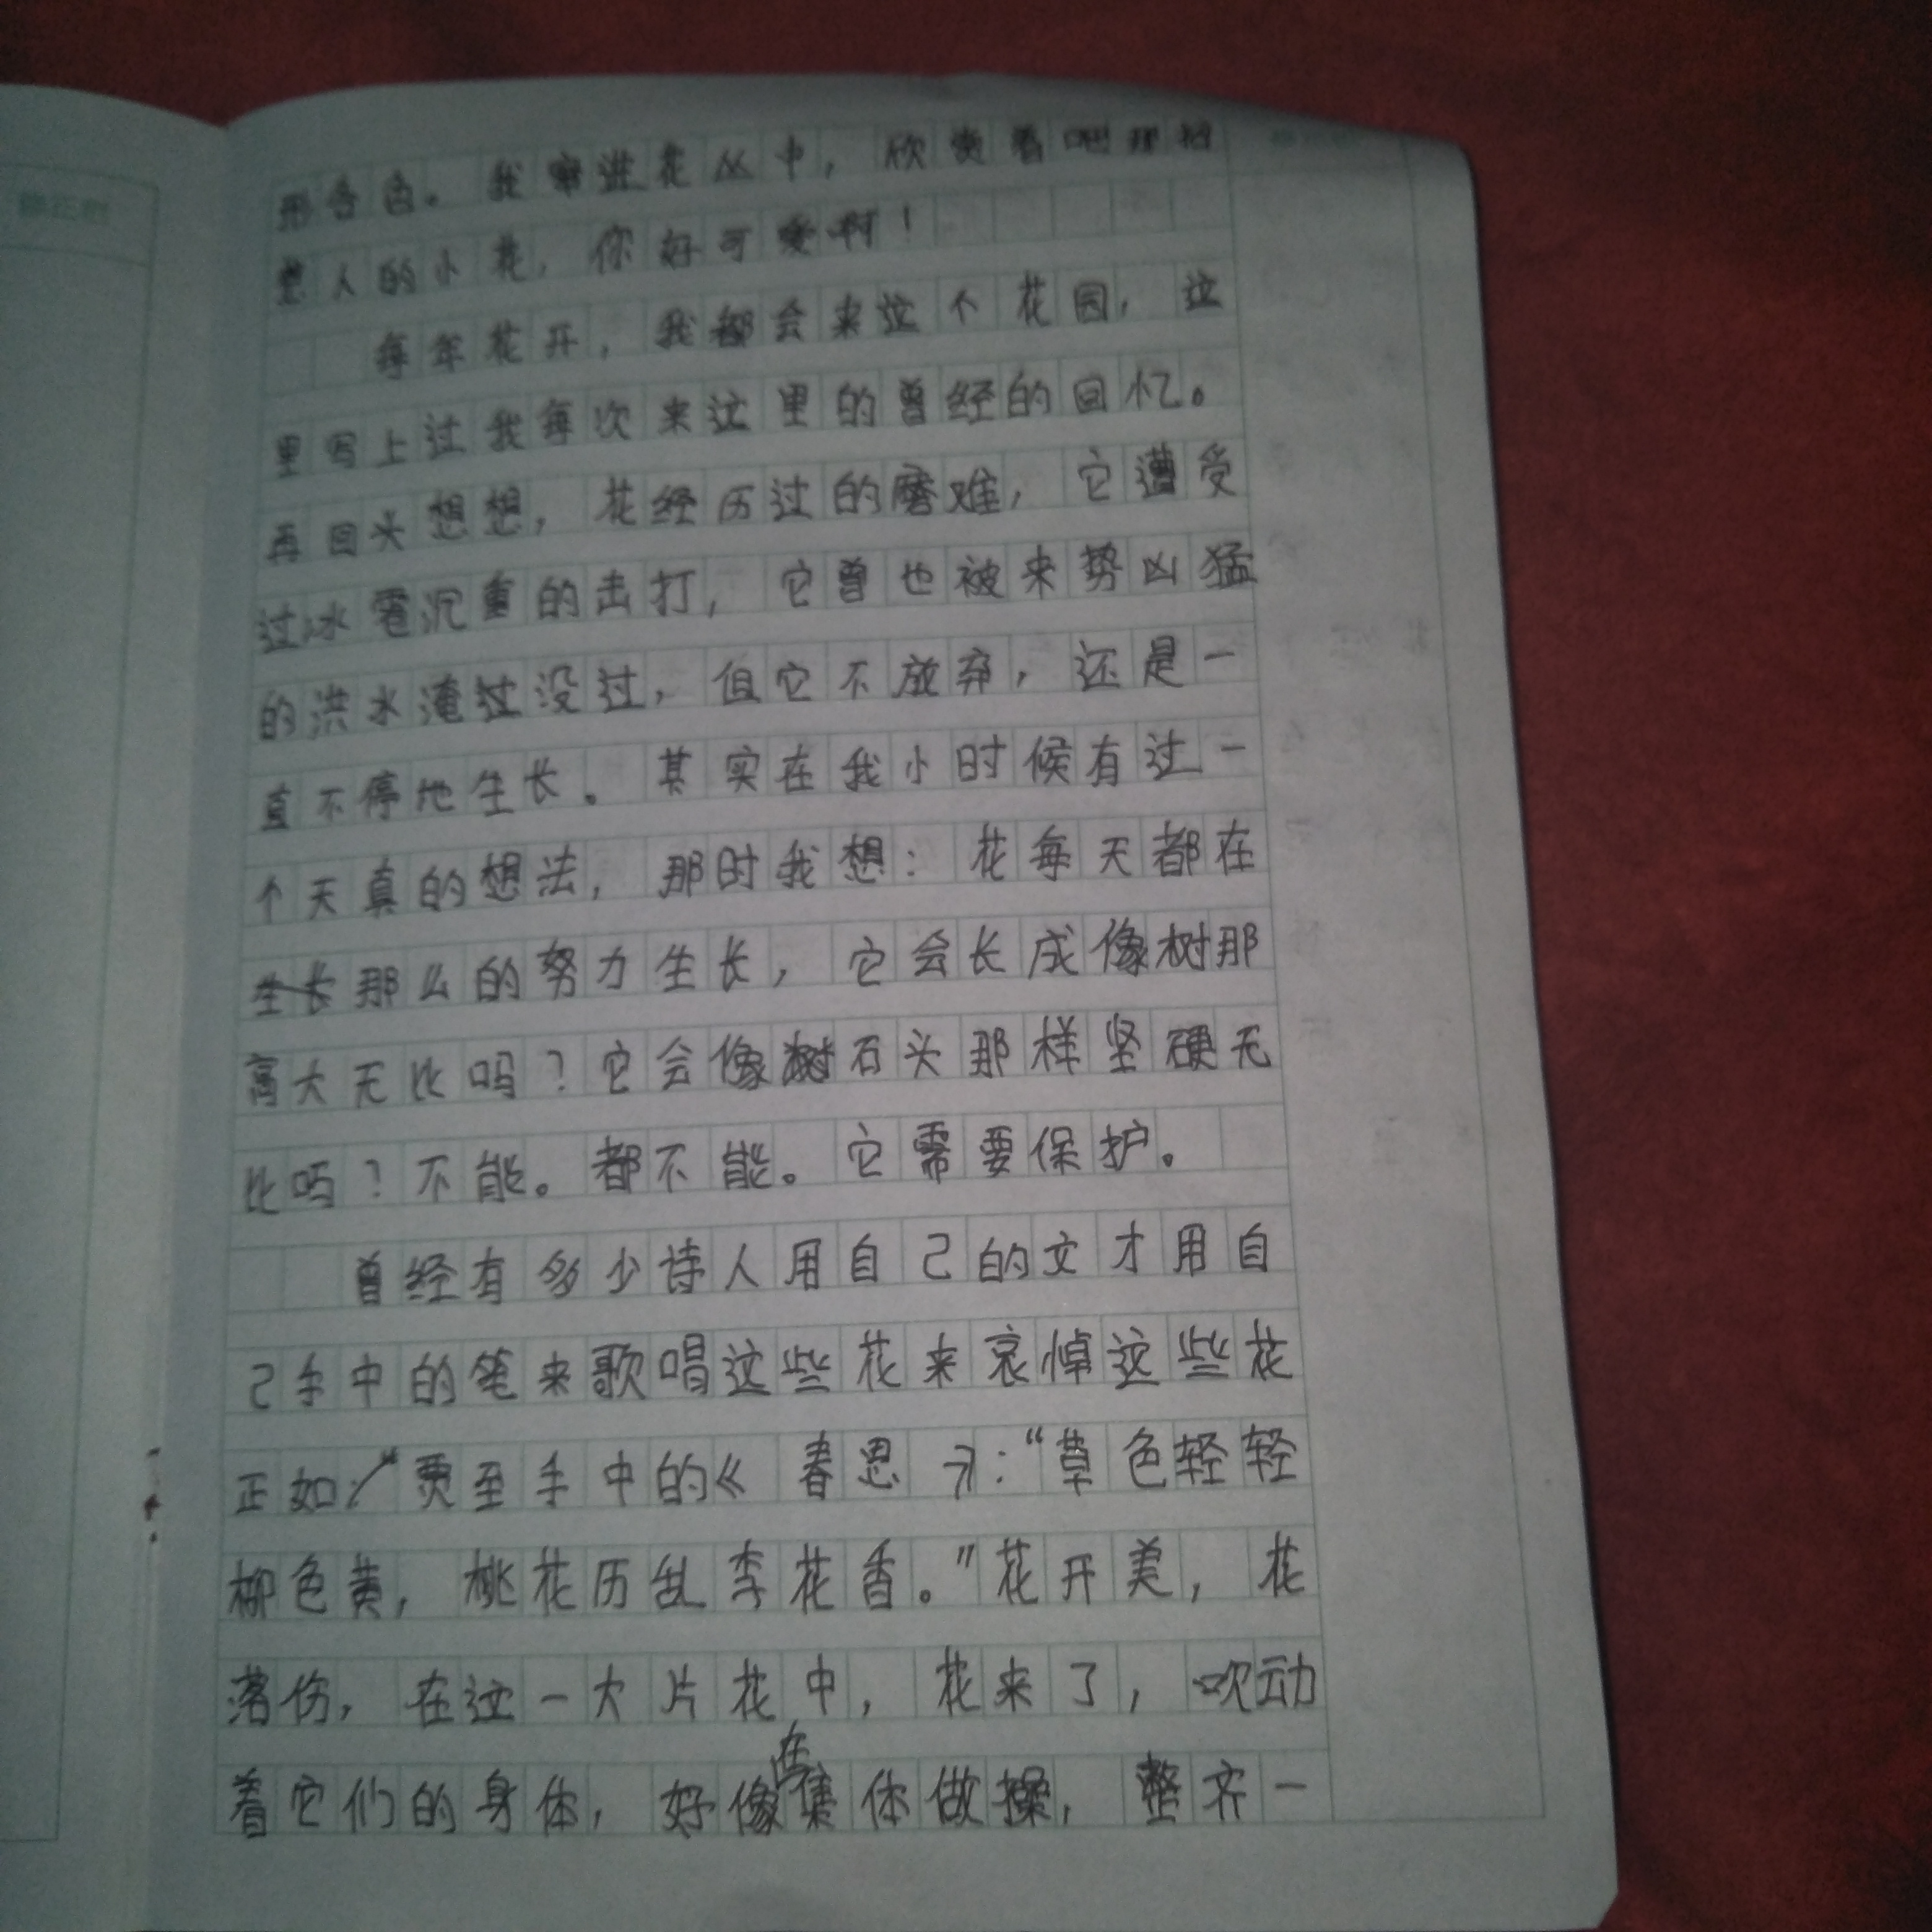 形各色。我窜进花丛中，欣赏着吧那招
惹人的小花，你好可爱啊！
每年花开，我都会来这个花园，这
里写上过我每次来这里的曾经的回忆。
再回头想想，花经历过的磨难，它遭受
过冰雹沉重的击打，它曾也被来势凶猛
的洪水淹过没过，但它不放弃，还是一
直不停地生长。其实在我小时候有过一
个天真的想法，那时我想：花每天都在
生长那么的努力生长，它会长成像树那
高大无比吗？它会像树石头那样坚硬无
比吗？不能。都不能。它需要保护。
曾经有多少诗人用自己的文才用自
己手中的笔来歌唱这些花来哀悼这些花
正如：“贾至手中的《春思》：“草色轻轻
柳色黄，桃花历乱李花香。”花开美，花
落伤，在这一大片花中，花来了，吹动
着它们的身体，好像在集体做操，整齐一